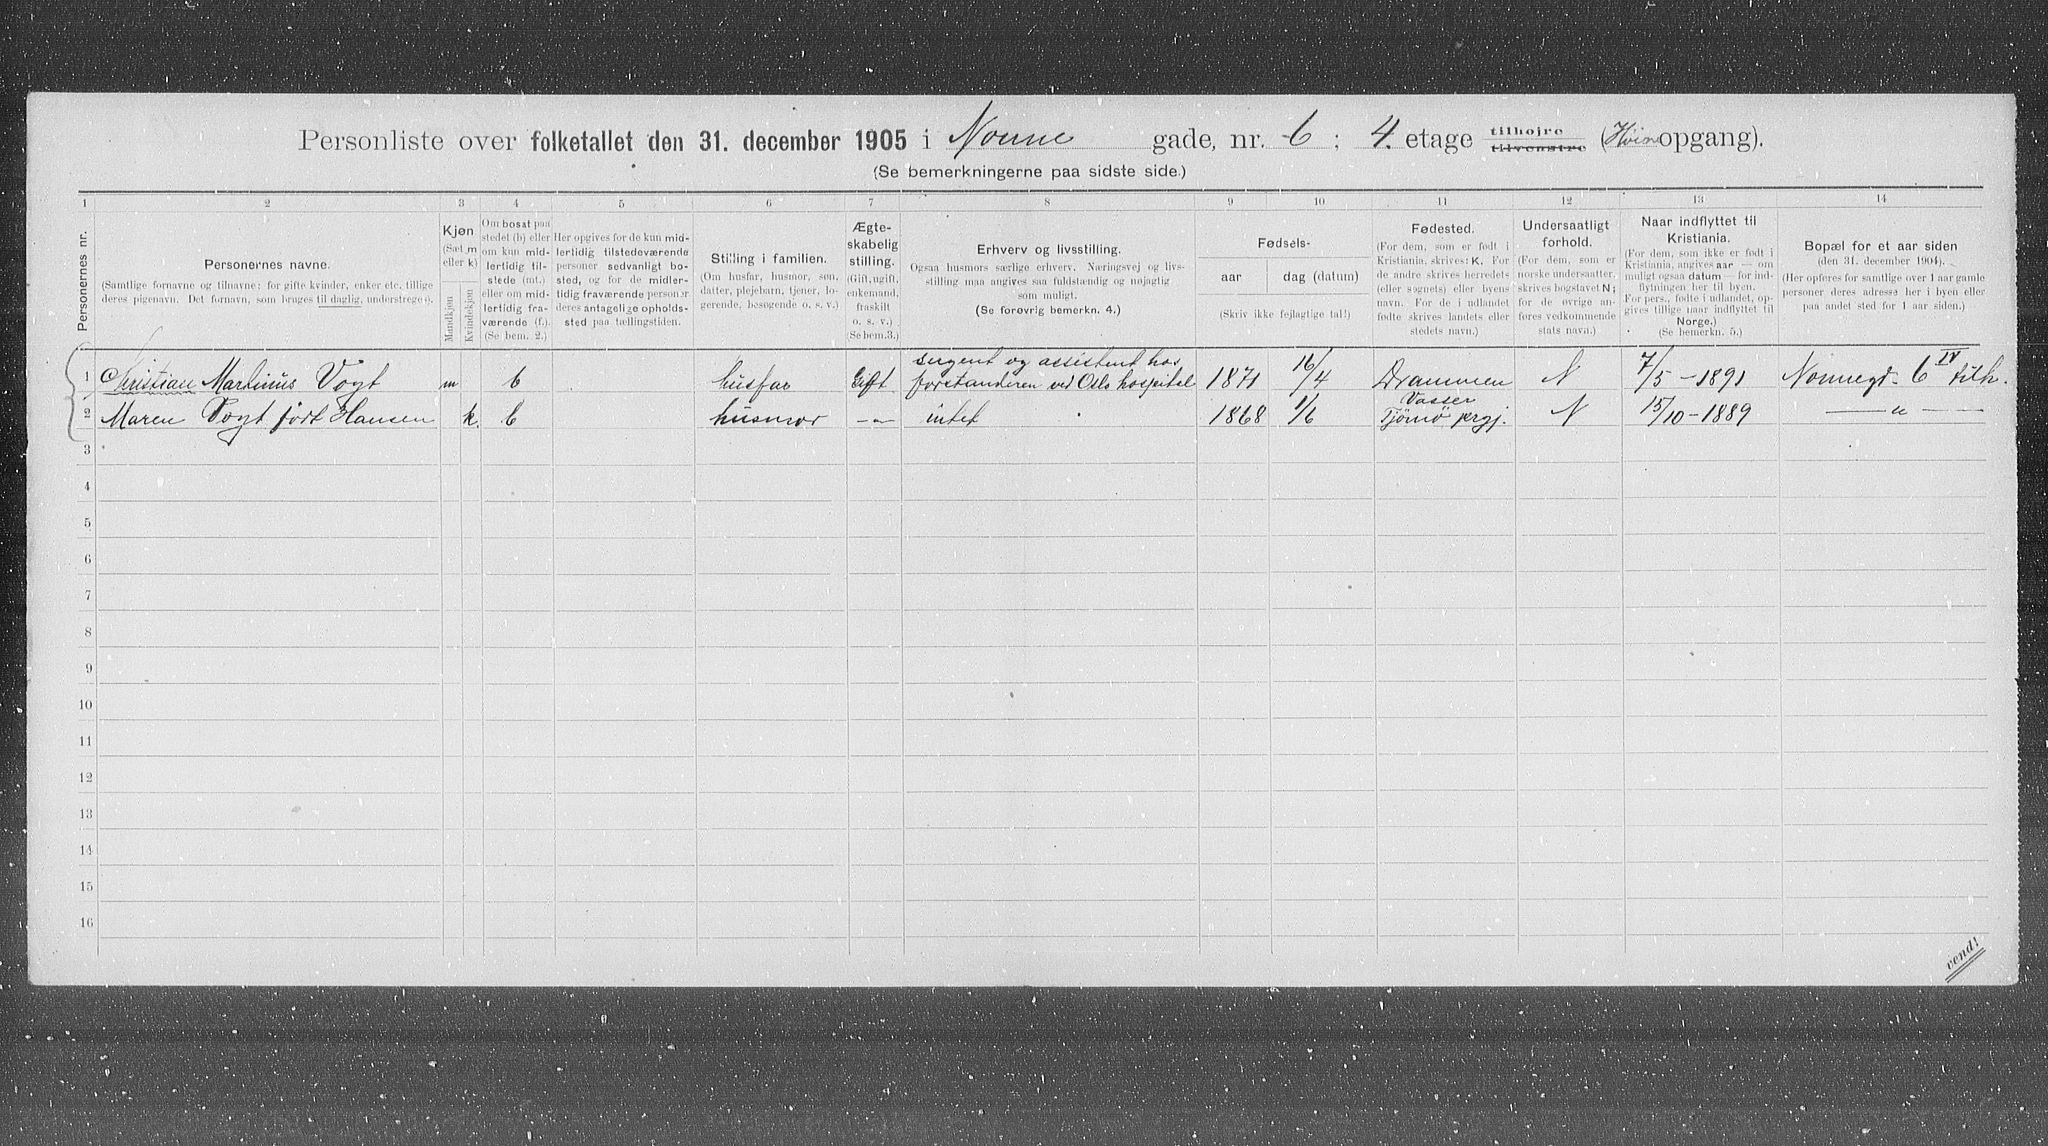 Personliste over folketallet den 31. december 1905 i Nonne gade, nr. 6 ; 4. etage tilhøjre tilvenstre ( opgang).
(Se bemerkningerne paa sidste side.)
1 2 3 4 5 6 7 8 9 10 11 12 13 14
Personernes nr.
Personernes navne.
(Samtlige fornavne og tilnavne; for gifte kvinder, enker etc. tillige
deres pigenavn. Det fornavn, som bruges til daglig, understreges).
Kjøn
(Sæt m
eller k)
Mandkjøn
Kvindekjøn
Om bosat paa
stedet (b) eller
om kun mid-
lertidig til-
stede (mt.)
eller om mid-
lertidig fra-
værende (f.)
(Se bem. 2.)
Her opgives for de kun mid-
lertidig tilstedeværende
personer sedvanligt bo-
sted, og for de midler-
tidig fraværende personer
deres antagelige opholds-
sted paa tællingstiden.
Stilling i familien.
(Om husfar, husmor, søn,
datter, plejebarn, tjener, lo-
gerende, besøgende o. s. v.)
Ægte-
skabelig
stilling.
(Gift, ugift,
enkemand,
fraskilt
o. s. v.)
(Se bem.3.)
Erhverv og livsstilling.
Ogsaa husmors særlige erhverv. Næringsvej og livs-
stilling maa angives saa fuldstændig og nøjagtig
som muligt.
(Se forøvrig bemerkn. 4.)
Fødsels-
aar dag (datum)
(Skriv ikke fejlagtige tal!)
Fødested.
(For dem, som er født i
Kristiania, skrives: K. For
de andre skrives herredets
(eller sognets) eller byens
navn. For de i udlandet
fødte skrives landets eller
stedets navn.)
Undersaatligt
forhold.
(For dem, som er
norske undersaatter,
skrives bogstavet N;
for de øvrige an-
føres vedkommende
stats navn.)
Naar indflyttet til
Kristiania.
(For dem, som ikke er født i
Kristiania, angives aar — om
muligt ogsaa datum — for ind-
flytningen her til byen.
For pers., fødte i udlandet, op-
gives tillige naar indflyttet til
Norge.)
(Se bemerkn. 5.)
Bopæl for et aar siden
(den 31. december 1904).
(Her opføres for samtlige over 1 aar gamle
personer deres adresse her i byen eller
paa andet sted for 1 aar siden.)
1 Christian Martinus Vogt m b husfar Gift sergent og assistent hos forstanderen ved Oslo hospital 1871 16/4 Drammen N 7/5 - 1891 Nonnegd. 6 IV tilh.
2 Maren Vogt født Hansen k. b husmor —„— intet 1868 1/6 Vasser Tjømø prgj. N 15/10 - 1889 —„—
3
4
5
6
7
8
9
10
11
12
13
14
15
16
vend!